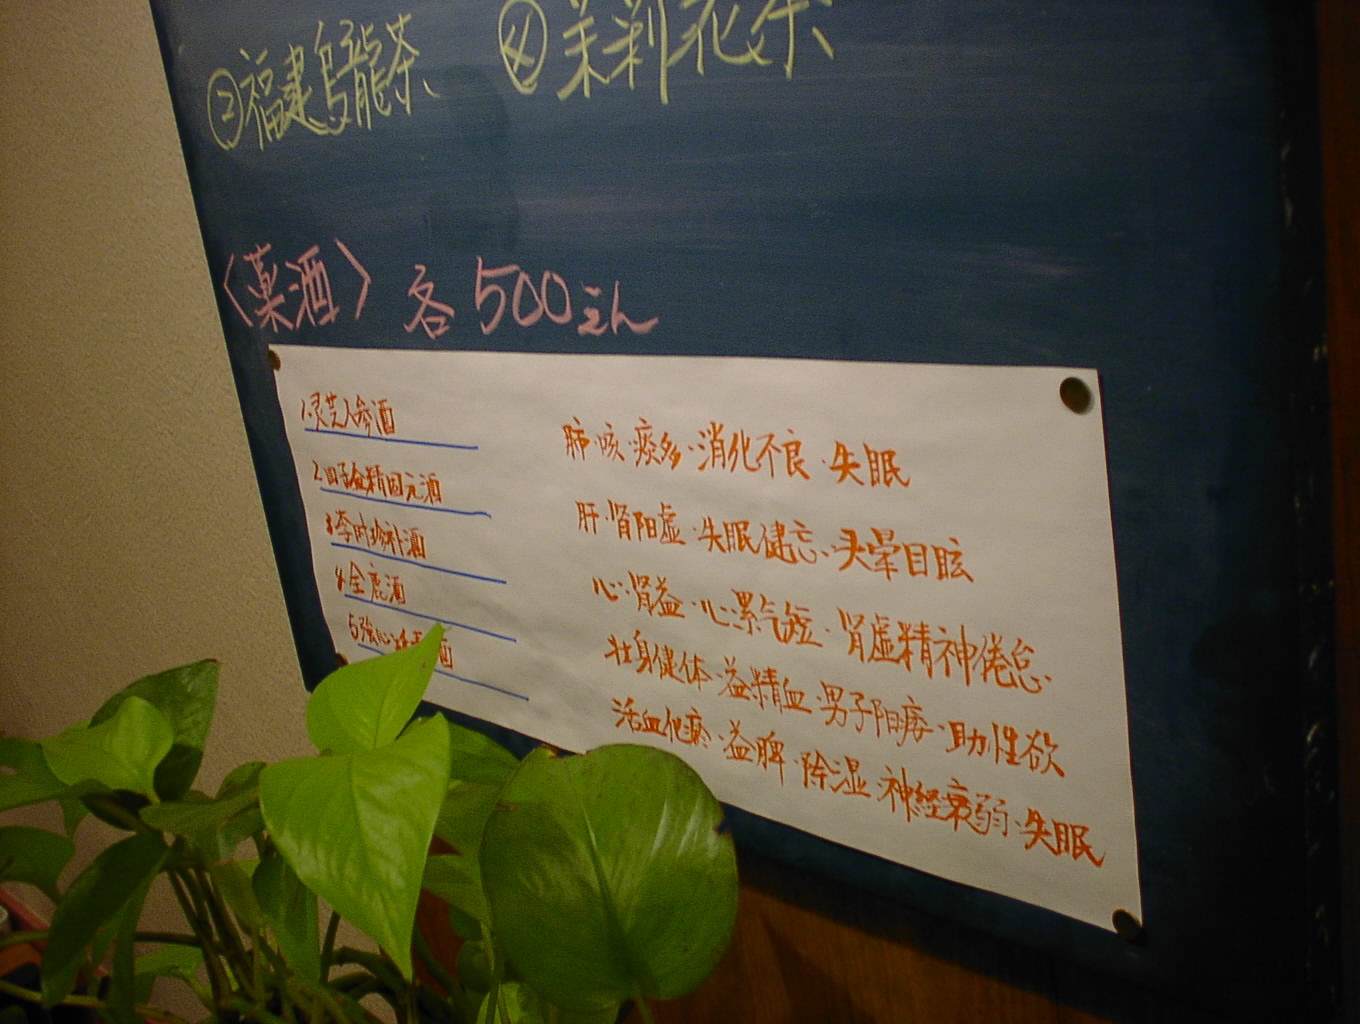 ②福建烏龍茶 ④茉莉花茶
〈薬酒〉各500えん
1.灵芝人参酒 肺·咳·痰多·消化不良·失眠
2. 酒 肝·肾阳虚·失眠健忘、头晕目眩
3李时珍补酒 心·肾益·心累气短·肾虚精神倦怠·
4全鹿酒 壮身健体·益精血·男子阳痿·助性欲
5強心 酒 活血化瘀·益脾·除湿·神経衰弱·失眠